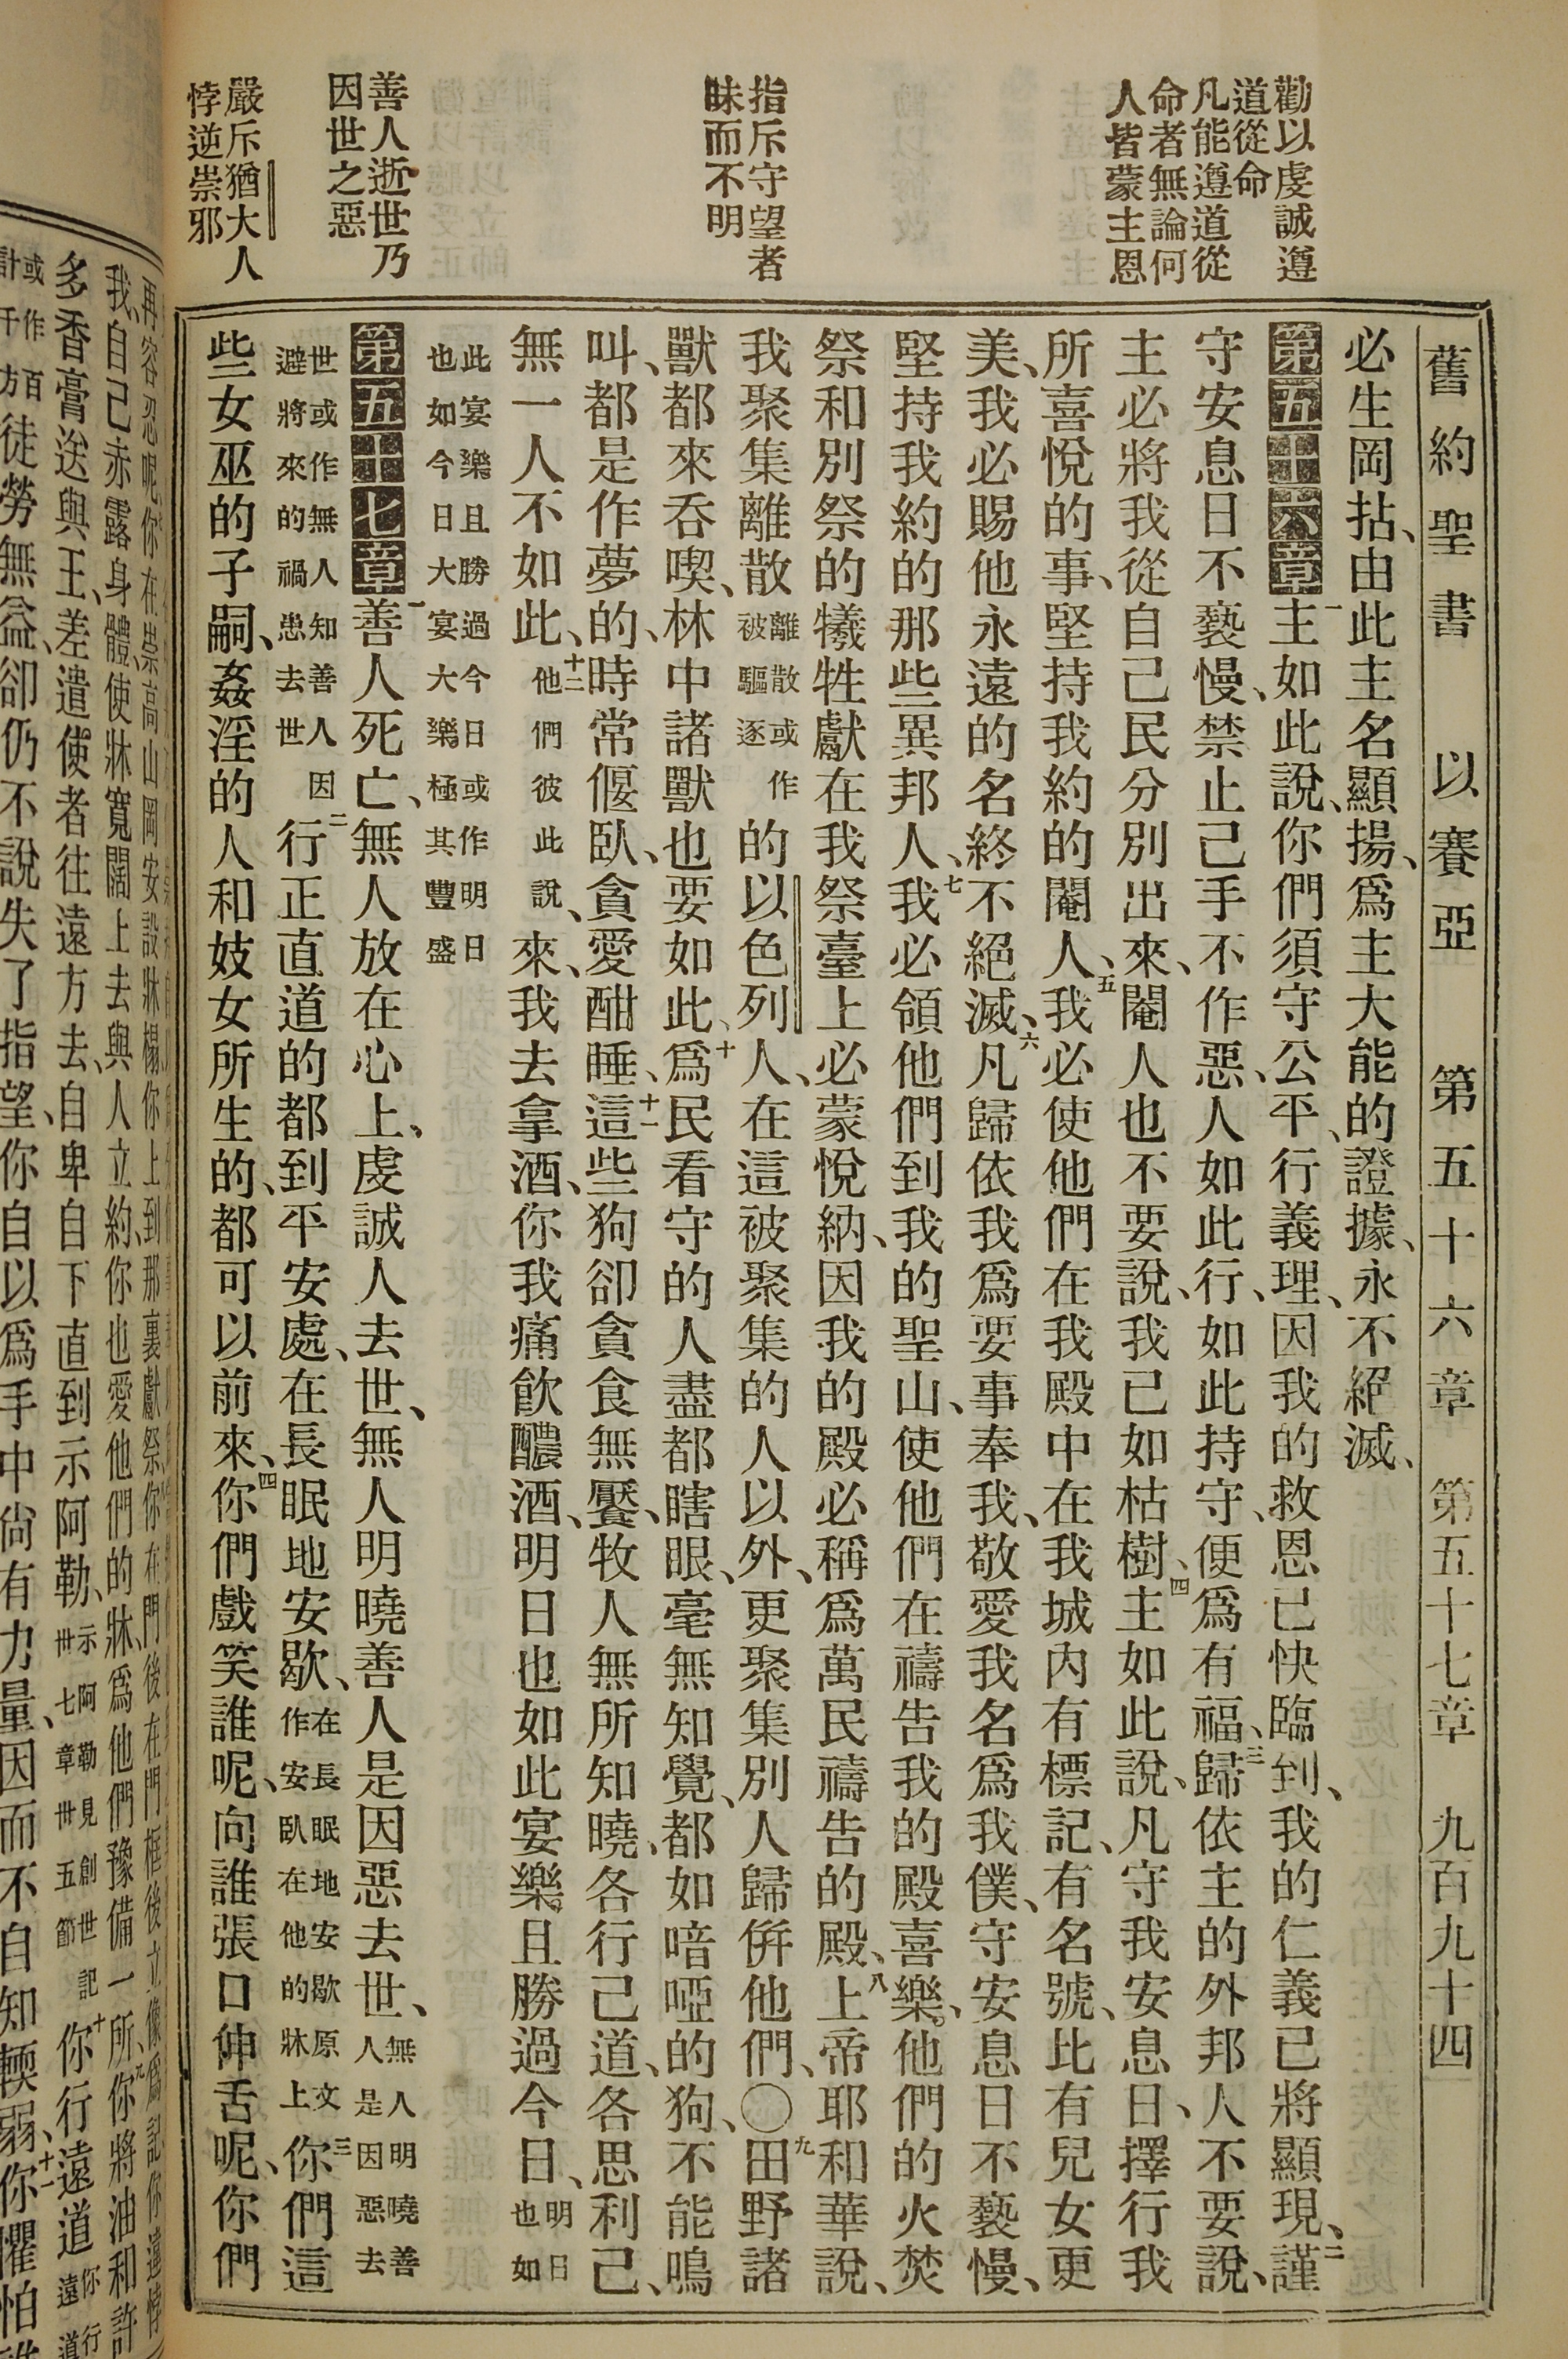 勸以虔誠遵
道從命
凡能遵道從
命者無論何
人皆蒙主恩
指斥守望者
昧而不明
善人逝世乃
因世之惡
嚴斥猶大人
悖逆崇邪
舊約聖書 以賽亞 第五十六章 第五十七章 九百九十四
必生岡拈、由此主名顯揚、爲主大能的證據、永不絕滅、
第五十六章 一主如此說、你們須守公平、行義理、因我的救恩已快臨到、我的仁義已將顯現、二謹
守安息日不褻慢、禁止己手不作惡、人如此行、如此持守、便爲有福、三歸依主的外邦人不要說、
主必將我從自己民分別出來、閹人也不要說、我已如枯樹、四主如此說、凡守我安息日、擇行我
所喜悅的事、堅持我約的閹人、五我必使他們在我殿中在我城內有標記、有名號、此有兒女更
美、我必賜他永遠的名終不絕滅、六凡歸依我爲要事奉我、敬愛我名爲我僕、守安息日不褻慢、
堅持我約的那些異邦人、七我必領他們到我的聖山、使他們在禱告我的殿喜樂、他們的火焚
祭和別祭的犧牲獻在我祭臺上必蒙悅納、因我的殿必稱爲萬民禱告的殿、八上帝耶和華說、
我聚集離散離散或作被驅逐的以色列人、在這被聚集的人以外、更聚集別人歸倂他們、〇九田野諸
獸都來吞喫、林中諸獸也要如此、十爲民看守的人盡都瞎眼、毫無知覺、都如喑啞的狗、不能鳴
叫、都是作夢的、時常偃臥、貪愛酣睡、十一這些狗卻貪食無饜、牧人無所知曉、各行己道、各思利己、
無一人不如此、十二他們彼此說、來、我去拿酒、你我痛飲醲酒、明日也如此宴樂、且勝過今日、明日也如
此宴樂且勝過今日或作明日也如今日大宴大樂極其豐盛
第五十七章 一善人死亡、無人放在心上、虔誠人去世、無人明曉善人是因惡去世、無人明曉善人是因惡去
世或作無人知善人因避將來的禍患去世二行正直道的都到平安處、在長眠地安歇、在長眠地安歇原文作安臥在他的牀上三你們這
些女巫的子嗣、姦淫的人和妓女所生的、都可以前來、四你們戲笑誰呢、向誰張口伸舌呢、你們
再容忍呢你在崇高山岡安設牀榻你上到那裏獻祭你在門後在門框後立像爲記你違悖
我、自己赤露身體、使牀寬闊上去與人立約、你也愛他們的牀、爲他們豫備一所、九你將油和許
多香膏送與王、差遣使者往遠方去、自卑自下直到示阿勒、示阿勒見創世記卅七章卅五節十你行遠道你行遠道
或作百計千方徒勞無益、卻仍不說失了指望、你自以爲手中尙有力量、因而不自知輭弱、十一你懼怕